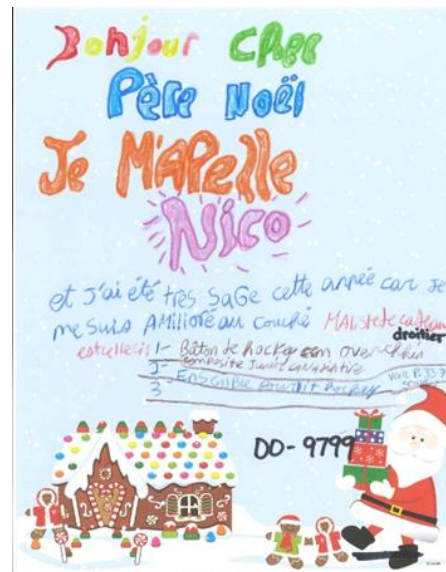 Bonjour Cher
Père Noël
Je M'APelle
Nico
et J'ai été très SaGe cette année car Je
me suis AMilioré au couché MAListe de cadeau
droitier
est celle ci 1- Bâton de hockey ccm
composite Junior
2-
3 Ensemble hockey
DD-9799